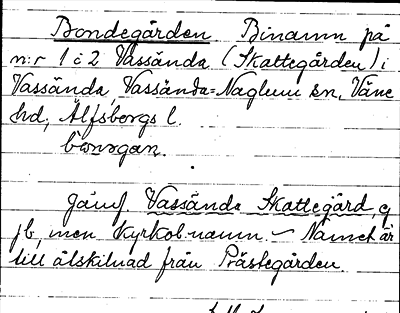 Bondegården Binamn på
n:r 1 i 2 Vassända (Skattegården) i
Vassända, Vassända-Naglum sn, Väne
hd, Älfsborgs l.
Jämf Vassända Skattegård, ej
jb, men kyrkob.namn. – Namnet är
till åtskilnad från Prästegården.